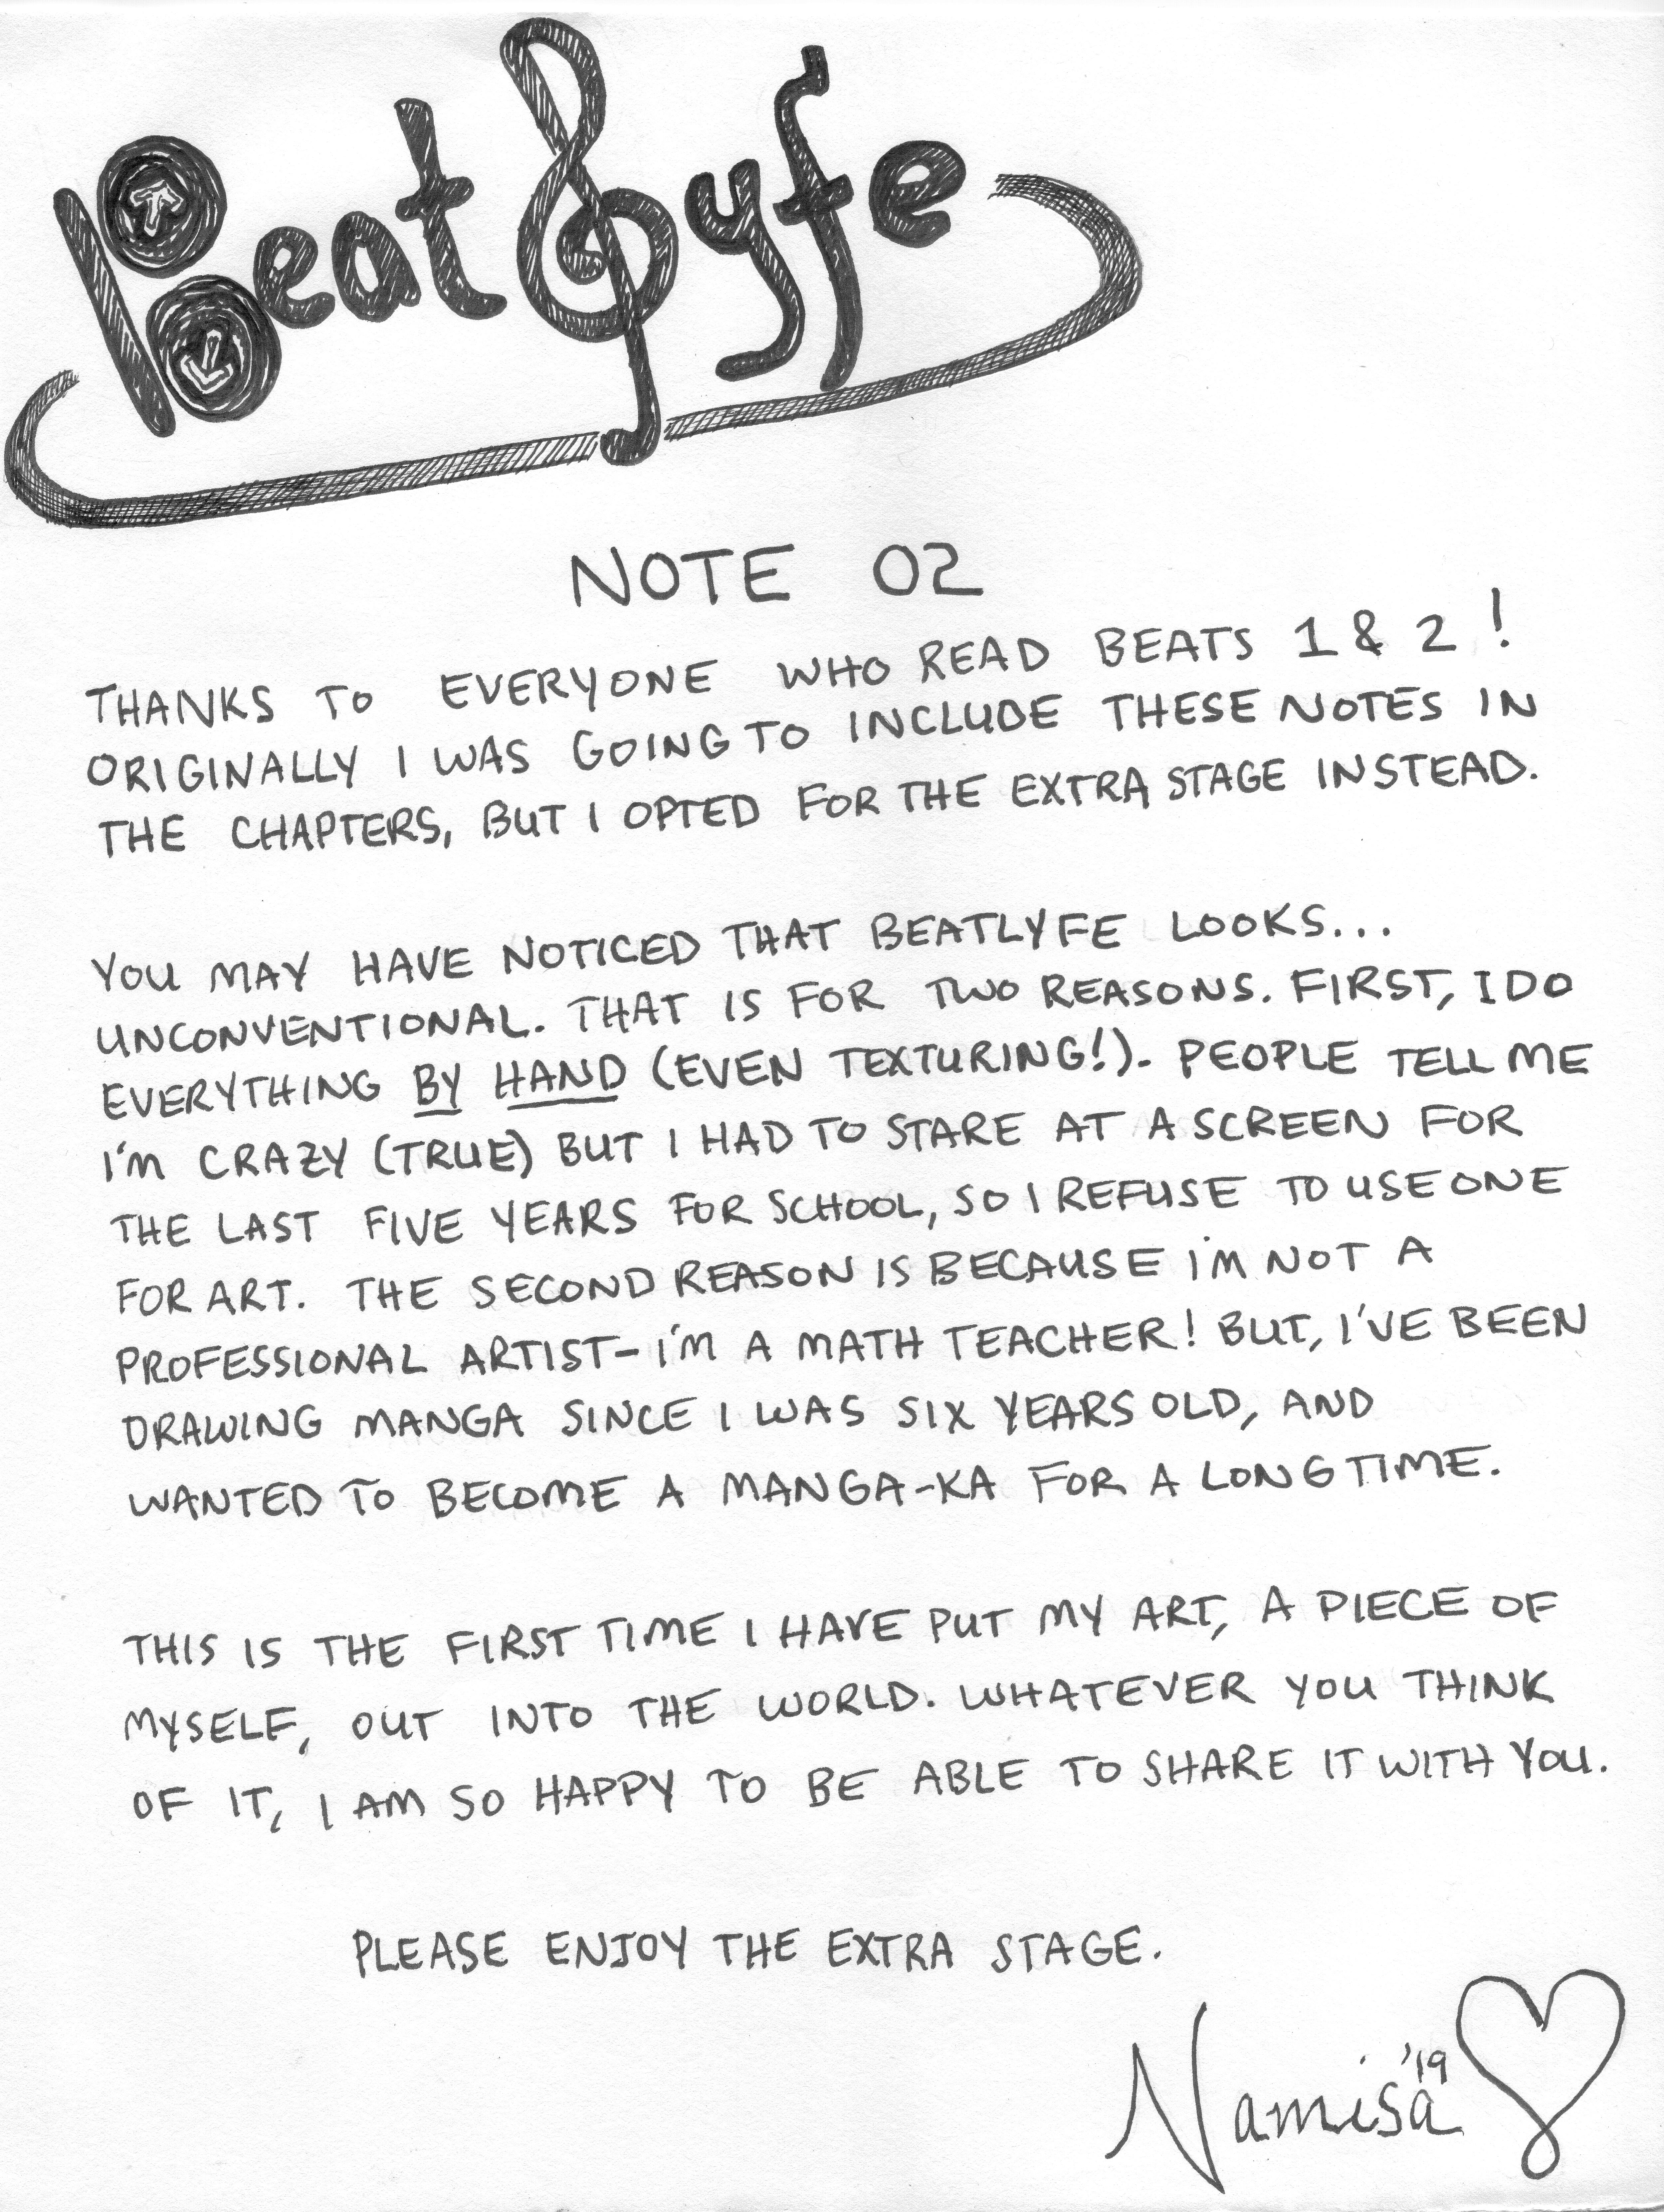 BeatLyfe
NOTE 02
THANKS TO EVERYONE WHO READ BEATS 1 & 2!
ORIGINALLY I WAS GOING TO INCLUDE THESE NOTES IN
THE CHAPTERS, BUT I OPTED FOR THE EXTRA STAGE INSTEAD.
YOU MAY HAVE NOTICED THAT BEATLYFE LOOKS...
UNCONVENTIONAL. THAT IS FOR TWO REASONS. FIRST, I DO
EVERYTHING BY HAND (EVEN TEXTURING!). PEOPLE TELL ME
I'M CRAZY (TRUE) BUT I HAD TO STARE AT A SCREEN FOR
THE LAST FIVE YEARS FOR SCHOOL, SO I REFUSE TO USE ONE
FOR ART. THE SECOND REASON IS BECAUSE I'M NOT A
PROFESSIONAL ARTIST- I'M A MATH TEACHER! BUT, I'VE BEEN
DRAWING MANGA SINCE I WAS SIX YEARS OLD, AND
WANTED TO BECOME A MANGA-KA FOR A LONG TIME.
THIS IS THE FIRST TIME I HAVE PUT MY ART, A PIECE OF
MYSELF, OUT INTO THE WORLD. WHATEVER YOU THINK
OF IT, I AM SO HAPPY TO BE ABLE TO SHARE IT WITH YOU.
PLEASE ENJOY THE EXTRA STAGE.
Namisa '19